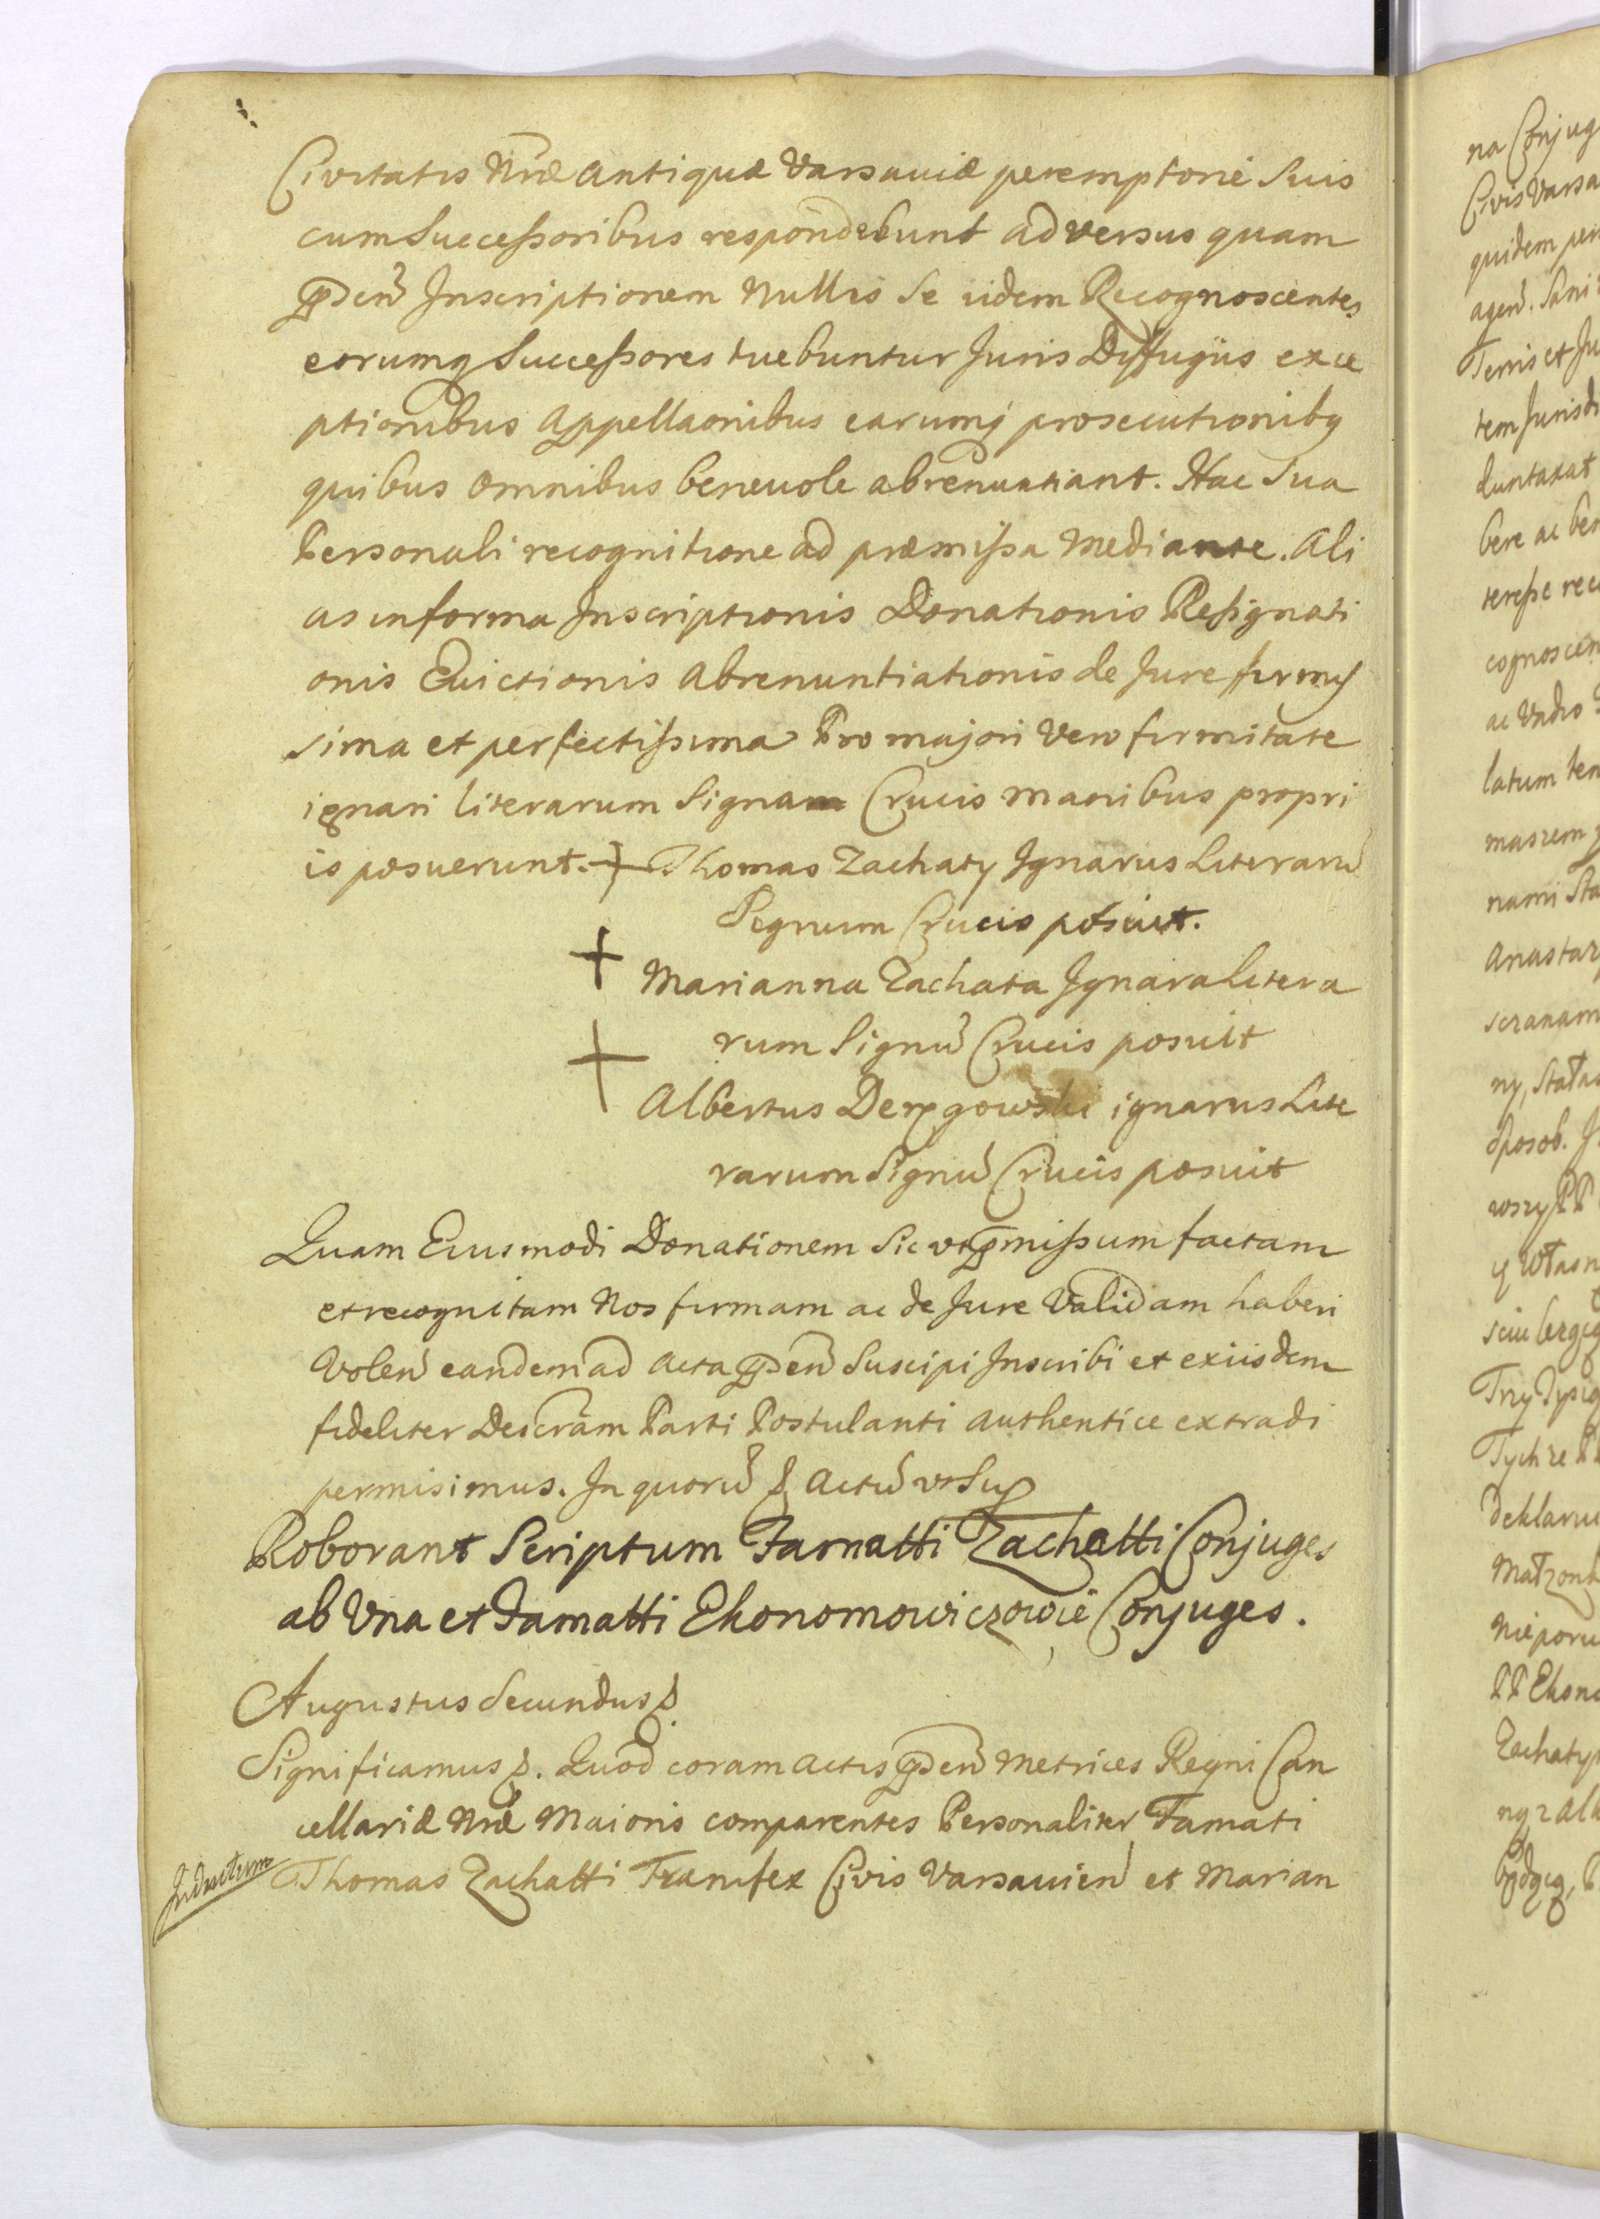 Civitatis Nræ Antiquæ Varsaviæ peremptorie Suis
cum Successoribus respondebunt adversus quam
pnsdem Inscriptionem Nullis Se iidem Recognoscentes
eorumq Successores tuebuntur Juris Diffugiis exce
ptionibus Appellaonibus earumq prosecutionibq
quibus omnibus benevole abrenuntiant. Hac Sua
Personali recognitione ad præmissa Mediante. Ali
as in forma Inscriptionis Donationis Resignati
onis Evictionis Abrenuntiationis de Jure firmis
sima et perfectissima Pro majori Vero firmitate
ignari literarum Signam Crucis manibus propri
is posuerunt. + Thomas Zachaty Ignarus Literarũ
Segnum Crucis posuit.
+ Marianna Zachata Ignara Litera
rum Signũ Crucis posuit
+ Albertus Derpgowski ignarus Lite
rarum Signũ Crucis posuit
Quam Eiusmodi Donationem Sic ut pmissum factam
et recognitam Nos firmam ac de Jure Validam haberi
Volen eandem ad Acta pnsen Suscipi Inscribi et exiisdem
fideliter Descram Parti Postulanti Authentice extradi
permisimus. In quorũ & Actũ ut Sup
Roborant Scriptum Famatti Zachatti Conjuges
ab Una et Famatti Ekonomowiczowie Conjuges.
Augustus Secundus &
Significamus &. Quod coram Actis pnsen Metrices Regni Can
cellariæ Nræ Maioris comparentes Personaliter Famati
Inductum Thomas Zachatti Francifex Civis Varsavien et Marian
na Conjug
Civis Varsa
quidem per
agen. Sani
Terris et Ju
tem Jurisdi
duntaxat
bere ac ben
teresse reco
cognoscen
ac Vadio
latum ten
nami Sta
Anastaz
ny, Stata
sposob. J
y Własn
Tych ze
deklaru
Małzonk
Nieporu
PP Ekono
Zachaty
ny z Alb
będącą, P